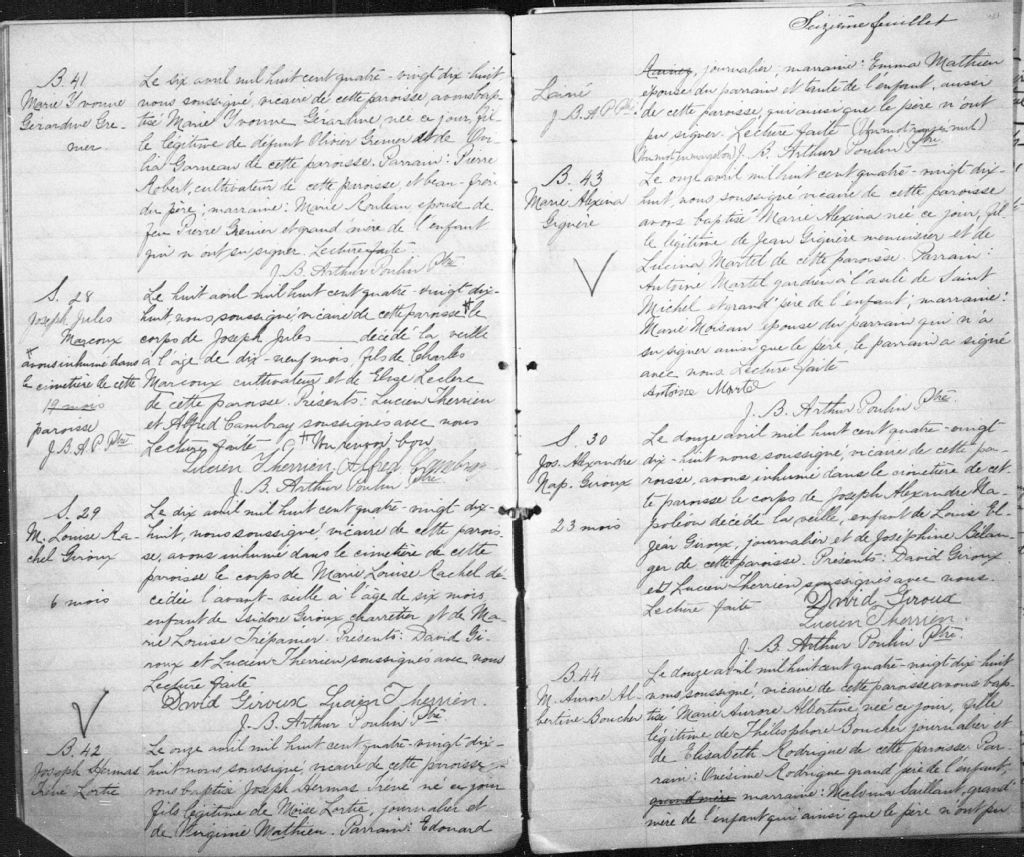 B. 41
Marie Yvonne
Gérardine Gre-
nier.
Le six avril mil huit cent quatre-vingt dix huit,
nous soussigné, vicaire de cette paroisse, avons bap-
tisé Marie Yvonne, Gérardine, née ce jour, fil
le légitime de défunt Olivier Grenier et de
Garneau de cette paroisse. Parrain: Pierre
Robert, cultivateur de cette paroisse, et beau-frère
du père; marraine: Marie Rouleau épouse de
feu Pierre Grenier et grand'mère de l'enfant
qui n'ont su signer. Lecture faite
J. B. Arthur Poulin Ptre
S. 28
Joseph Jules
Marcoux
*avons inhumé dans
le cimetière de cette
19 mois
paroisse
J. B. A. P. Ptre
Le huit avril mil huit cent quatre-vingt dix-
huit, nous, soussigné, vicaire de cette paroisse * le
corps de Joseph Jules décédé la veille
à l'âge de dix-neuf mois, fils de Charles
Marcoux cultivateur et de Elise Leclerc
de cette paroisse. Présents: Lucien Therrien
et Alfred Cambray soussignés avec nous
Lecture faite * Un renvoi bon
Lucien Therrien Alfred Cambray
J. B. Arthur Poulin Ptre
S. 29
M. Louise Ra-
chel Giroux
6 mois
Le dix avril mil huit cent quatre-vingt dix-
huit, nous soussigné, vicaire de cette parois-
se, avons inhumé dans le cimetière de cette
paroisse le corps de Marie Louise Rachel dé-
cédée l'avant-veille à l'âge de six mois,
enfant de Isidore Giroux charretier et de Ma-
rie Louise Trépanier. Présents: David Gi-
roux et Lucien Therrien, soussignés avec nous
Lecture faite
David Giroux Lucien Therrien.
J. B. Arthur Poulin Ptre
B. 42
Joseph Hermas
Iréné Lortie
Le onze avril mil huit cent quatre-vingt dix-
huit nous, soussigné, vicaire de cette paroisse, a-
vons baptisé Joseph Hermas Iréné né ce jour
fils légitime de Moïse Lortie, journalier et
de Virginie Mathieu. Parrain: Edouard
Seizième feuillet
Lainé
J. B. A. P. Ptre
journalier, marraine: Emma Mathieu
épouse du parrain et tante de l'enfant, aussi
de cette paroisse, qui ainsi que le père n'ont
pu signer. Lecture faite (Un mot rayé nul)
(Un mot en marge bon) J. B. Arthur Poulin Ptre
B. 43
Marie Alexina
Giguère
Le onze avril mil huit cent quatre-vingt dix-
huit, nous soussigné vicaire de cette paroisse
avons baptisé Marie Alexina née ce jour, fil
le légitime de Jean Giguère menuisier et de
Lucina Martel de cette paroisse. Parrain:
Antoine Martel gardien à l'asile de Saint
Michel et grand'père de l'enfant; marraine:
Marie Moisan épouse du parrain qui n'a
su signer ainsi que le père, le parrain a signé
avec nous Lecture faite
Antoine Martel
J. B. Arthur Poulin Ptre.
S. 30
Jos. Alexandre
Nap. Giroux
23 mois
Le douze avril mil huit cent quatre-vingt
dix-huit nous soussigné, vicaire de cette pa-
roisse, avons inhumé dans le cimetière de cet-
te paroisse le corps de Joseph Alexandre Na-
poléon décédé la veille, enfant de Louis El-
jéar Giroux, journalier et de Joséphine Bélan-
ger de cette paroisse. Présents: David Giroux
et Lucien Therrien soussignés avec nous.
Lecture faite
David Giroux
Lucien Therrien.
J. B. Arthur Poulin Ptre.
B. 44
M. Aurore Al-
bertine Boucher
Le douze avril mil huit cent quatre-vingt dix huit
nous, soussigné, vicaire de cette paroisse avons bap-
tisé Marie Aurore Albertine née ce jour, fille
légitime de Théléophore Boucher journalier et
de Elisabeth Rodrigue de cette paroisse Par-
rain: Onésime Rodrigue grand père de l'enfant,
grand'mère marraine: Malvina Vaillant, grand'
mère de l'enfant qui ainsi que le père n'ont pu